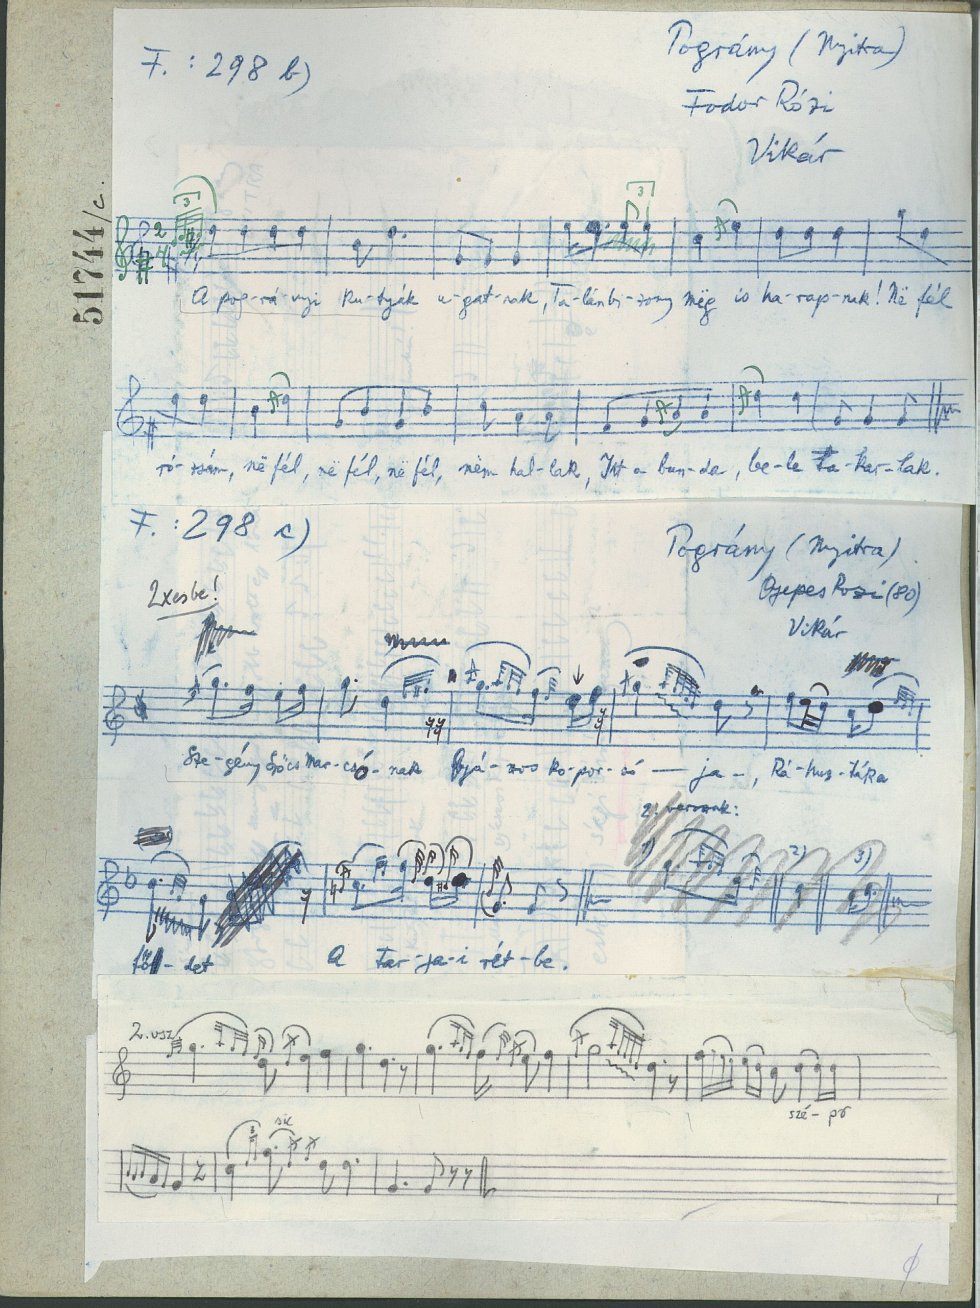 F. : 298 b)
Pográny (Nyitra)
Fodor Rózi
Vikár
51744/c.
3
3
2
4
A pog-rá-nyi ku-tyák u-gat-nak, Ta-lánbi-zony mëg is ha-rap-nak! Në fél
ró-zsám, në fél, në fél, në fél, nëm hal-lak, Itt a bun-da, be-le ta-kar-lak.
F. : 298 c)
Pográny (Nyitra)
Gyepes Rozi (80)
Vikár
2xesbe!
Sze-gény Szőcs Mar-csó-nak Gyá-szos ko-por-só — ja —, Rá-húz-ták a
2. versszak:
1)
2)
3)
föl-det A tar-ja-i rét-be.
2. vsz.
szé-pő
sic
3